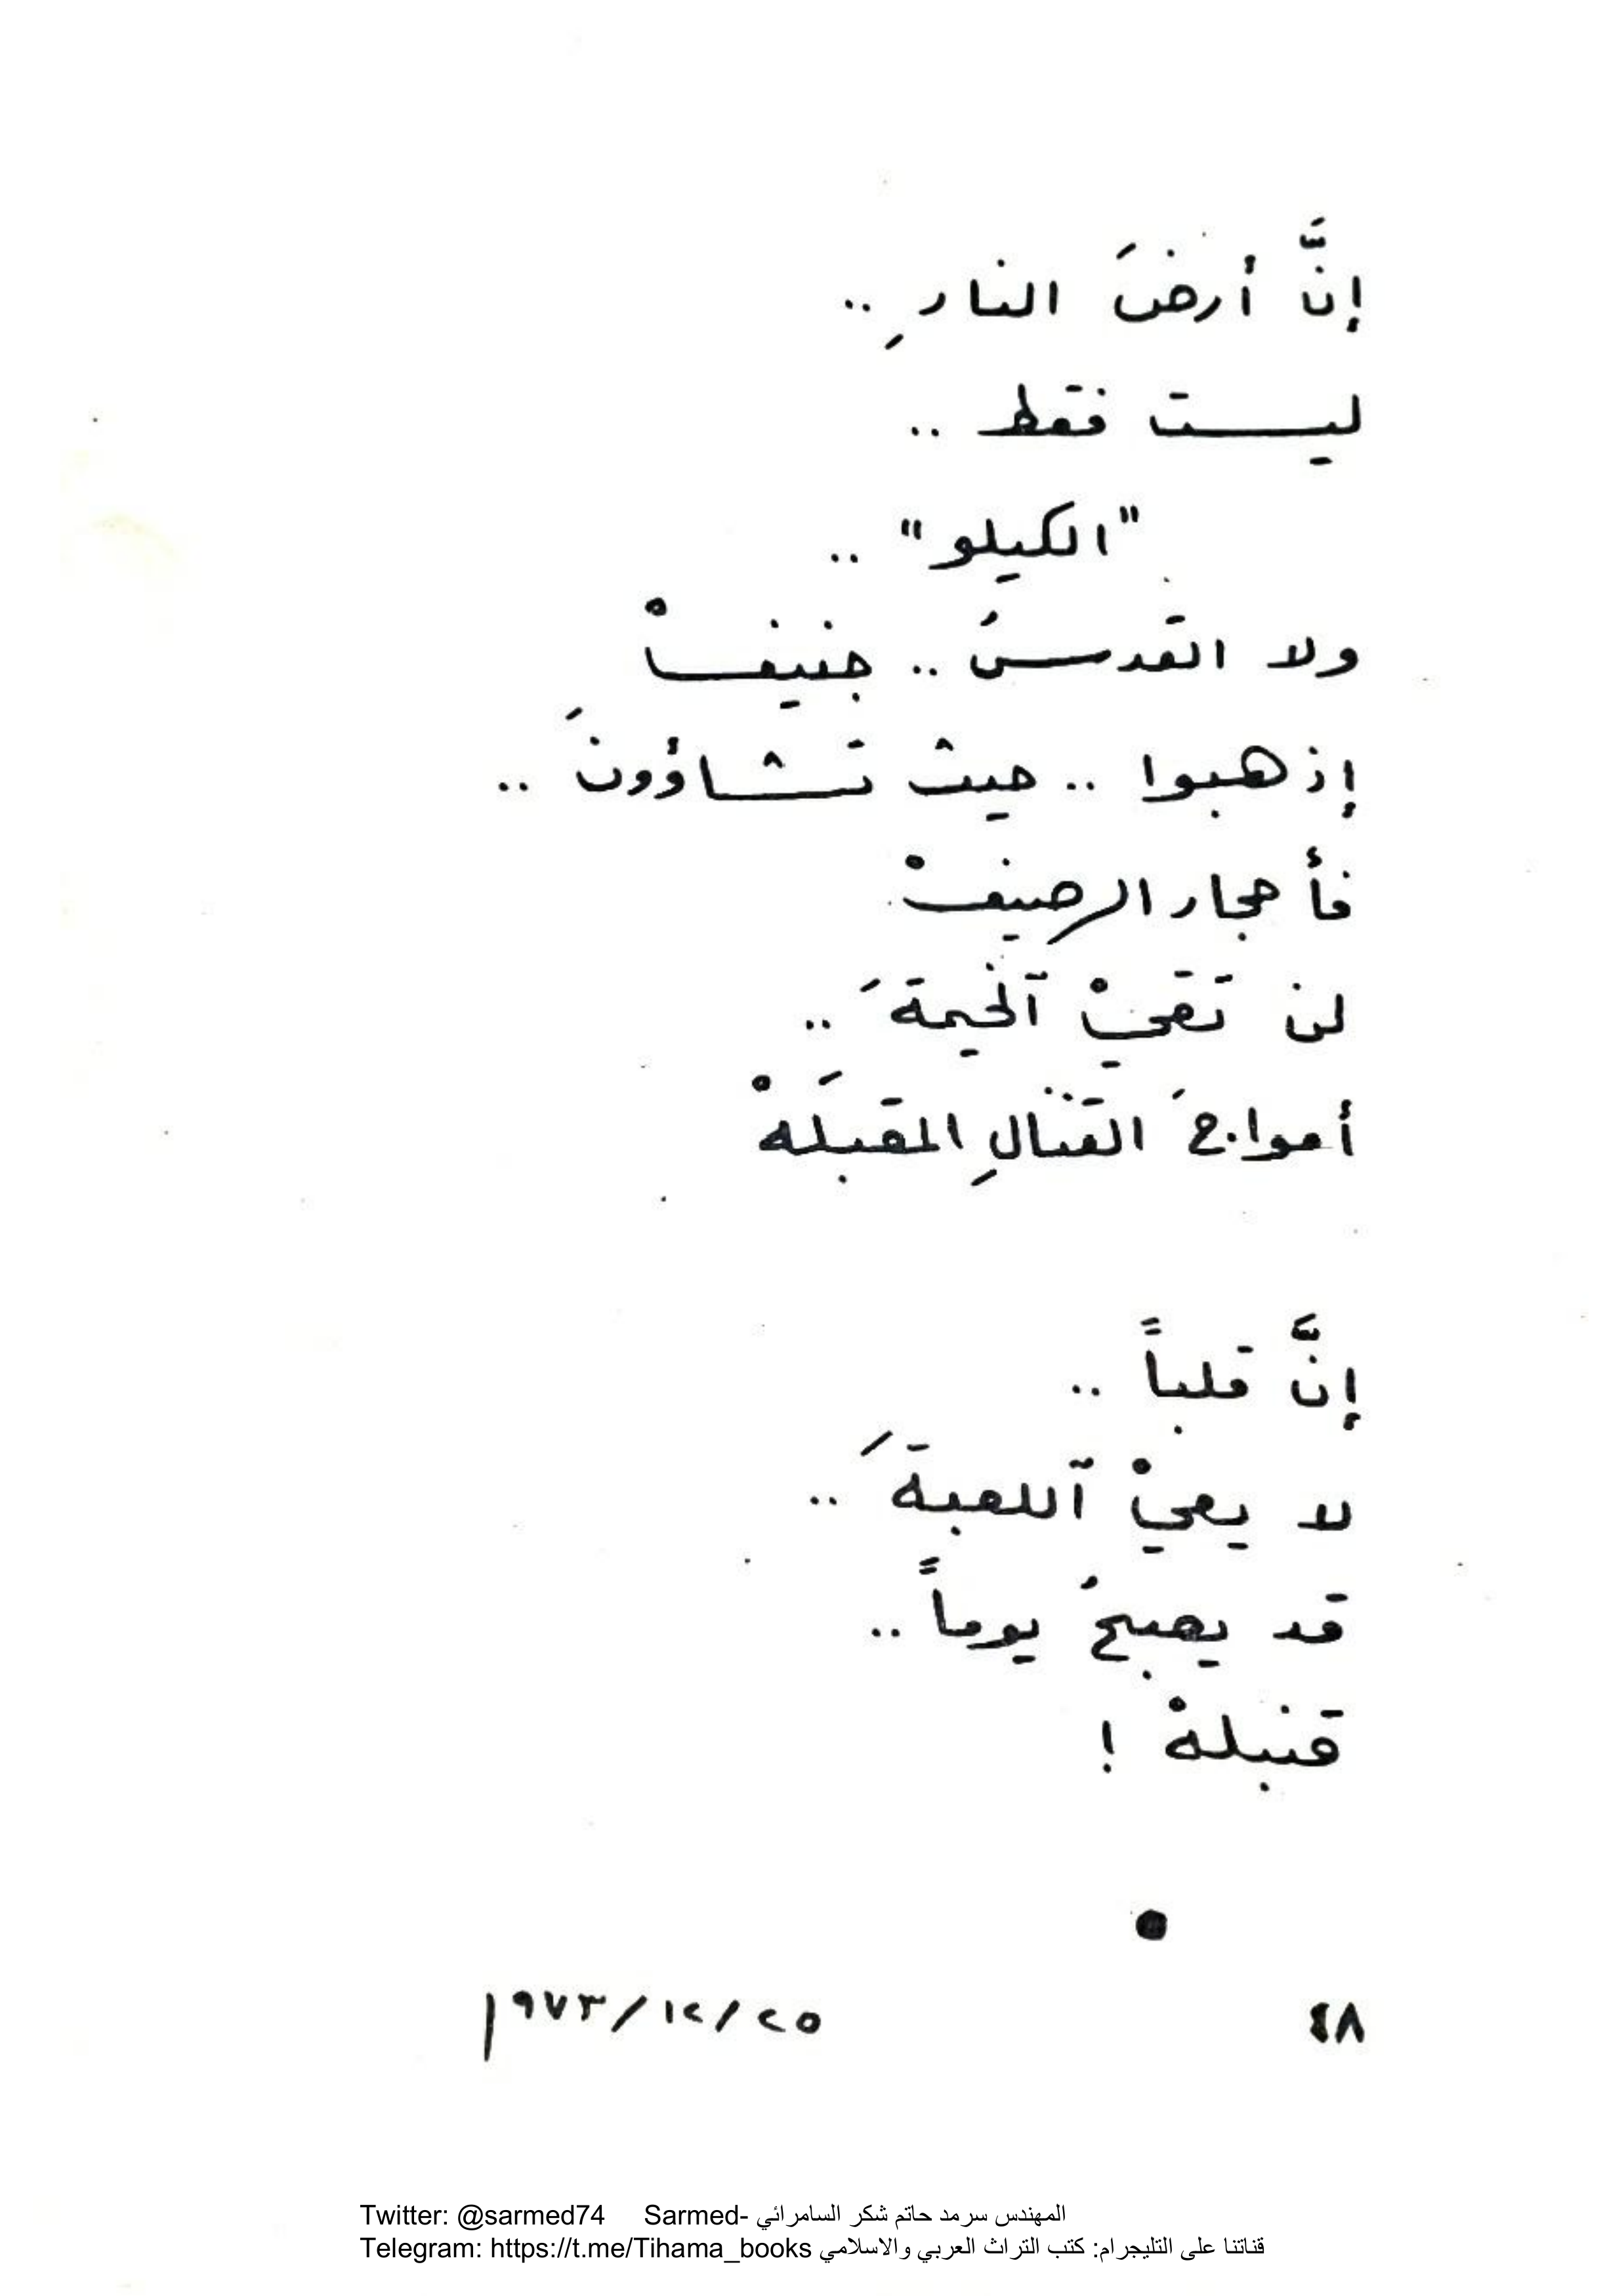 إنَّ أرضَ النارِ ..
ليست فقط ..
"الكيلو" ..
ولا القدسُ .. جنيفْ
إذهبوا .. حيث تشاؤونَ ..
فأحجار الرصيفْ
لن تقيْ ٱلخيمةَ ..
أمواجَ القتالِ المقبلَهْ
إنَّ قلباً ..
لا يعيْ ٱللعبةَ ..
قد يصبحُ يوماً ..
قنبلهْ !
٤٨
١٩٧٣/١٢/٢٥
Twitter: @sarmed74 Sarmed- المهندس سرمد حاتم شكر السامرائي
Telegram: https://t.me/Tihama_books قناتنا على التليجرام: كتب التراث العربي والاسلامي